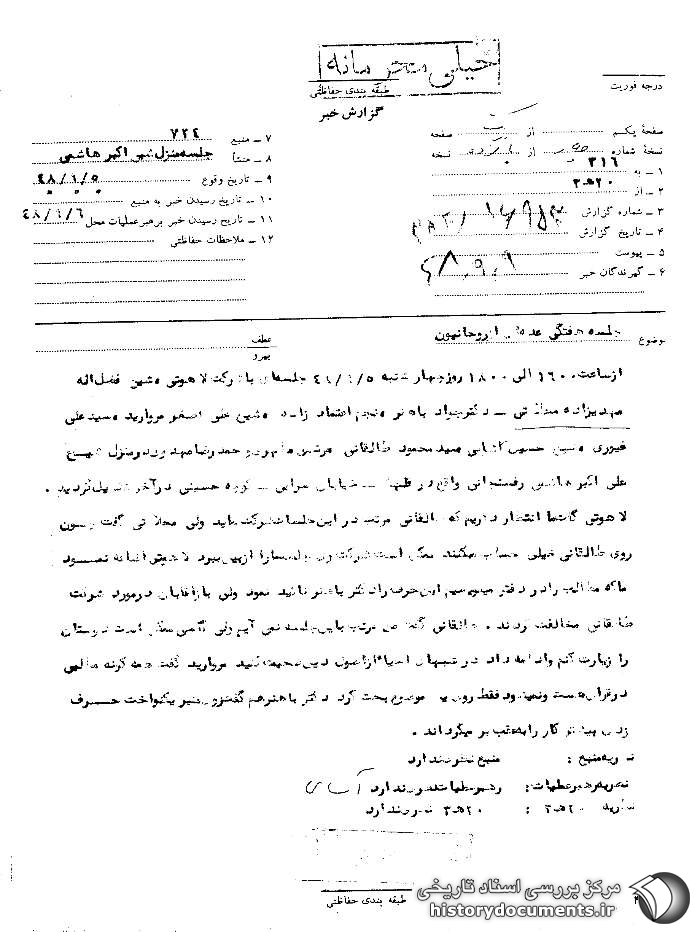 خیلی محرمانه
طبقه بندی حفاظتی
گزارش خبر
درجه فوریت
صفحه یکم از یک صفحه
نسخه شماره از نسخه
۱ ـ به ۳۱۶
۲ ـ از ۲۰ ه‍ ۳
۳ ـ شماره گزارش
۴ ـ تاریخ گزارش
۵ ـ پیوست
۶ ـ گیرندگان خبر
۷ ـ منبع ۷۲۴
۸ ـ منشأ جلسه منزل شیخ اکبر هاشمی
۹ ـ تاریخ وقوع ۴۸/۱/۵
۱۰ ـ تاریخ رسیدن خبر به منبع
۱۱ ـ تاریخ رسیدن خبر برهبر عملیات محل ۴۸/۱/۶
۱۲ ـ ملاحظات حفاظتی
موضوع جلسه هفتگی عده‌ای از روحانیون
عطف
پیرو
از ساعت ۱۶۰۰ الی ۱۸۰۰ روز چهارشنبه ۴۸/۱/۵ جلسه‌ای با شرکت لاهوتی و شیخ فضل‌اله
مهدیزاده محلاتی ـ دکتر جواد باهنر و منجم اعتماد زاده و شیخ علی اصغر مروارید و سید علی
غیوری و شیخ حسین کاشانی سید محمود طالقانی مرتضی و حمد رضا مهد در منزل شیخ
علی اکبر هاشمی رفسنجانی واقع در قلهک ـ خیابان مرآتی ـ کوچه حسینی در آخر تشکیل گردید .
لاهوتی گفت ما انتظار داریم که طالقانی مرتب در این جلسات شرکت نماید ولی محلاتی گفت چون
روی طالقانی خیلی حساب میکنند ممکن است شرکت وی جلسه ما را از بین ببرد لاهوتی اضافه نمود
ما که مطالب را در دفتر مینویسیم این حرف را دکتر باهنر تائید نمود ولی باز آقایان در مورد شرکت
طالقانی مخالفت کردند . طالقانی گفت من مرتب باین جلسه نمی آیم ولی گاهی ممکن است دوستان
را زیارت کنم و ادامه داد در شبهای احیاء از اصول دین صحبت کنید مروارید گفت همه گونه مطالبی
در قرآن هست و نمیشود فقط روی یک موضوع بحث کرد دکتر باهنر هم گفت روی منبر یکنواخت حرف
زدن بیشتر کار را بعقب بر میگرداند .
نظریه منبع : منبع نظری ندارد
نظریه رهبر عملیات : رهبر عملیات نظری ندارد
نظریه ۲۰ ه‍ ۳ : ۲۰ ه‍ ۳ نظری ندارد
طبقه بندی حفاظتی
مرکز بررسی اسناد تاریخی
historydocuments.ir